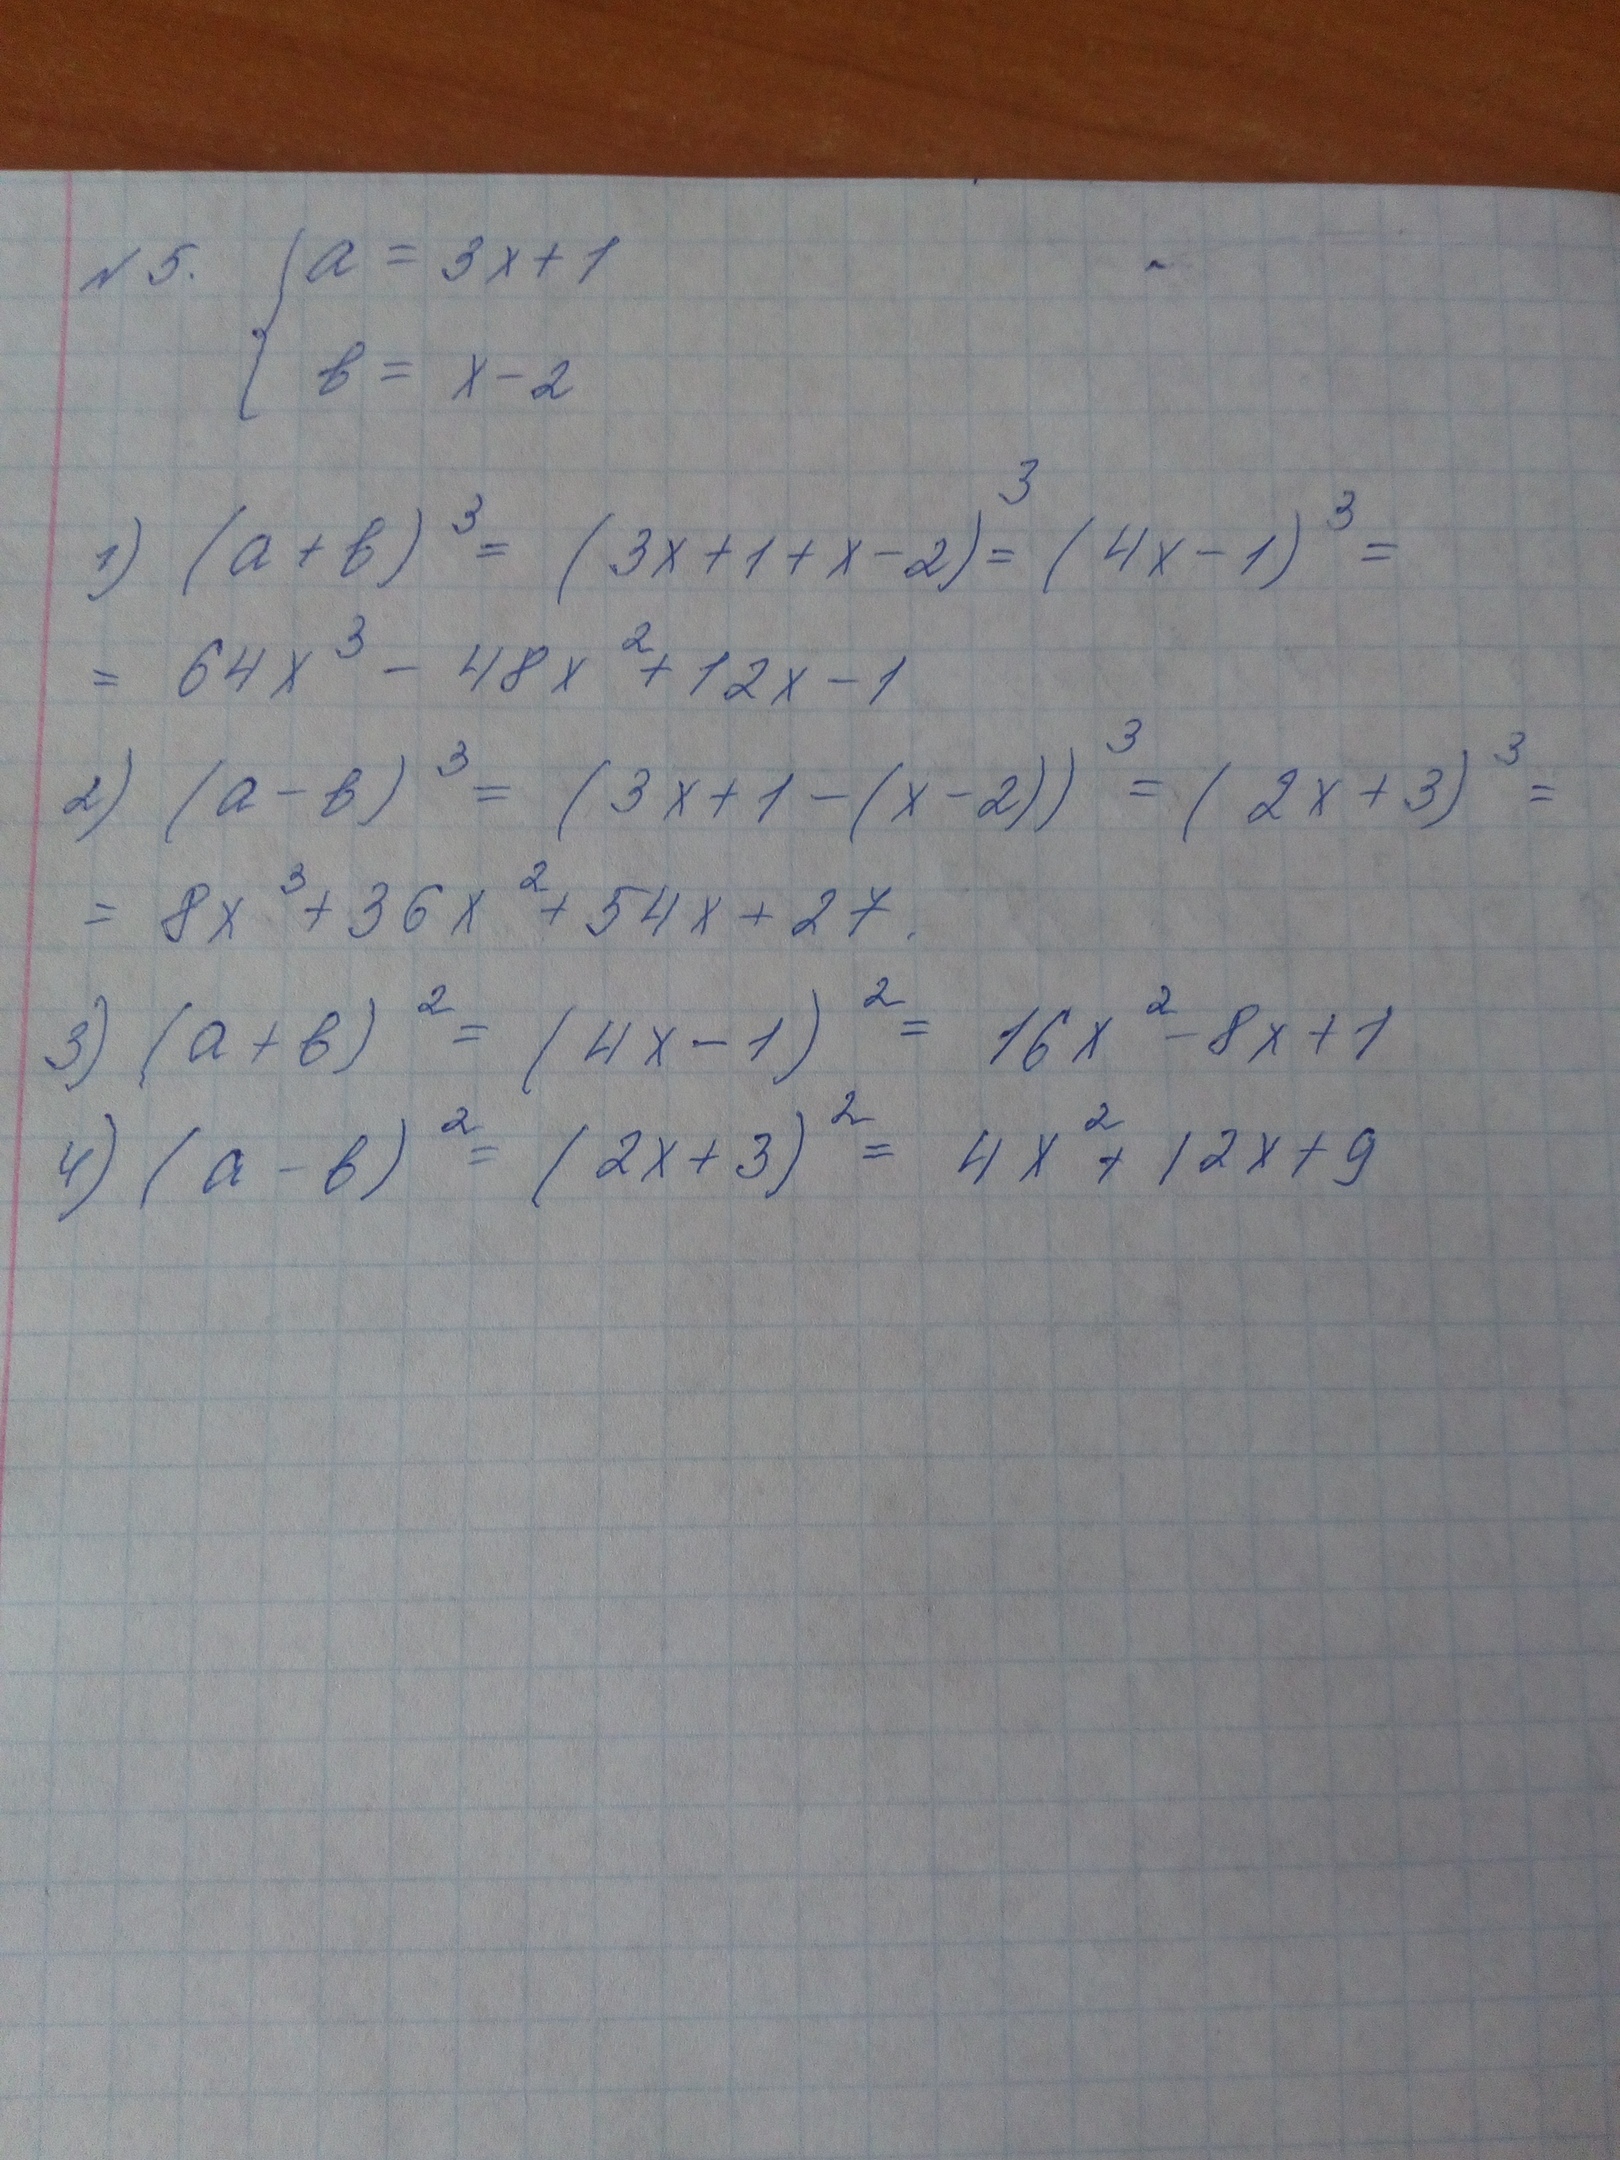 №5. { a = 3x+1
в = x-2
1) (a+в)³ = (3x+1+x-2)³ = (4x-1)³ =
= 64x³ - 48x² + 12x - 1
2) (a-в)³ = (3x+1-(x-2))³ = (2x+3)³ =
= 8x³ + 36x² + 54x + 27.
3) (a+в)² = (4x-1)² = 16x² - 8x + 1
4) (a-в)² = (2x+3)² = 4x² + 12x + 9